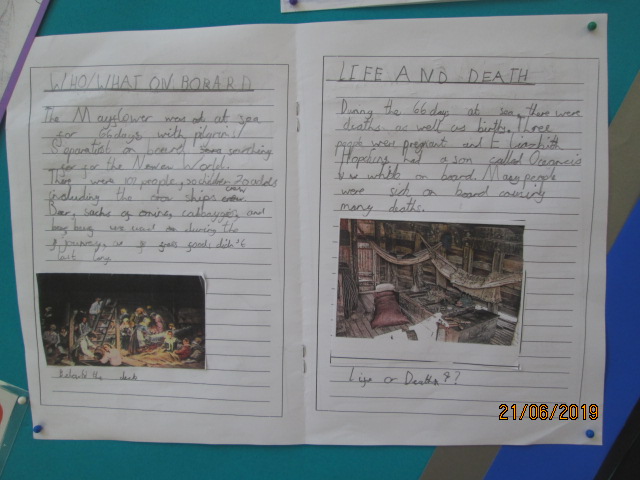 WHO/WHAT ON BOARD
The Mayflower was at sea
for 66 days with pilgrim/
Separatist on board searching
for the New World.
There were 102 people,
including the ships crew
and
during the
journey, as goods didn't
last long.
the deck
LIFE AND DEATH
During the 66 days at sea, there were
deaths as well as births. Three
people were pregnant and Elizabeth
Hopkins had a son called Oceanus
on board. Many people
were sick on board causing
many deaths.
Life or Death?
21/06/2019